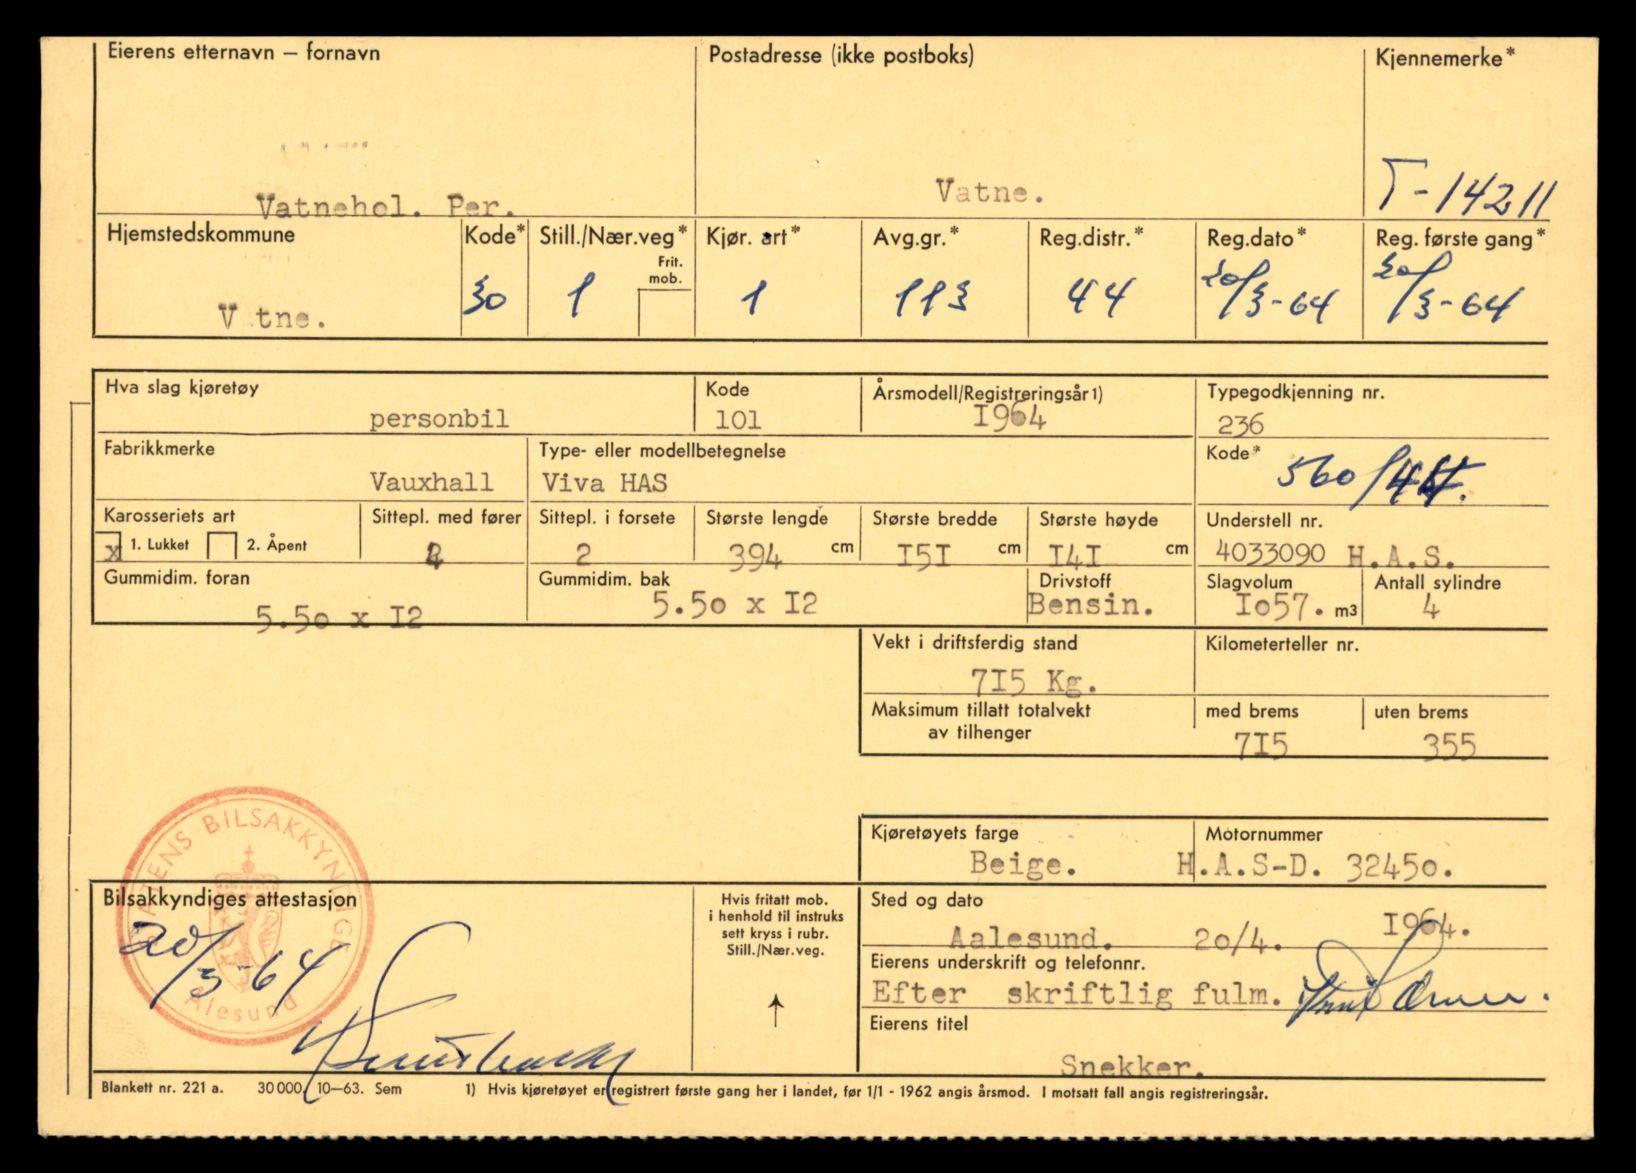 Eierens etternavn – fornavn Postadresse (ikke postboks) Kjennemerke*
Vatnehol. Per. Vatne. T-14211
Hjemstedskommune Kode* Still./Nær.veg* Kjør. art* Avg.gr.* Reg.distr.* Reg.dato* Reg. første gang*
Frit. mob.
V tne. 30 1 1 113 44 20/3-64 20/3-64
Hva slag kjøretøy Kode Årsmodell/Registreringsår1) Typegodkjenning nr.
personbil 101 I964 236
Fabrikkmerke Type- eller modellbetegnelse Kode*
Vauxhall Viva HAS 560/44.
Karosseriets art Sittepl. med fører Sittepl. i forsete Største lengde Største bredde Største høyde Understell nr.
x 1. Lukket 2. Åpent 4 2 394 cm I5I cm I4I cm 4033090 H.A.S.
Gummidim. foran Gummidim. bak Drivstoff Slagvolum Antall sylindre
5.5o x I2 5.5o x I2 Bensin. Io57. m3 4
Vekt i driftsferdig stand Kilometerteller nr.
7I5 Kg.
Maksimum tillatt totalvekt av tilhenger med brems uten brems
7I5 355
Kjøretøyets farge Motornummer
Beige. H.A.S-D. 3245o.
STATENS BILSAKKYNDIGE
Ålesund
Bilsakkyndiges attestasjon
20/3-64
Hvis fritatt mob.
i henhold til instruks
sett kryss i rubr.
Still./Nær.veg.
Sted og dato
Aalesund. 2o/4. I964.
Eierens underskrift og telefonnr.
Efter skriftlig fulm.
Eierens titel
Snekker.
Blankett nr. 221 a. 30 000. 10–63. Sem 1) Hvis kjøretøyet er registrert første gang her i landet, før 1/1 - 1962 angis årsmod. I motsatt fall angis registreringsår.